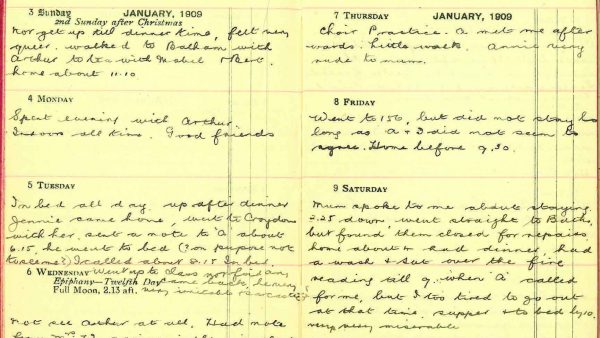 3 Sunday JANUARY, 1909
2nd Sunday after Christmas
Not get up till dinner time, felt very
queer. walked to Balham with
Arthur to tea with Mabel & Bert.
home about 11.10
4 MONDAY
Spent evening with Arthur.
Indoors all time. Good friends
5 TUESDAY
In bed all day. up after dinner
Jennie came home, went to Croydon
with her. sent a note to A about
6.15, he went to bed (? on purpose not
to see me?) I called about 8.15 In bed.
6 WEDNESDAY went up to class
Epiphany—Twelfth Day came back,
Full Moon, 2.13 aft. very
Not see Arthur at all. Had note
7 THURSDAY JANUARY, 1909
Choir Practice. A met me after
wards. little walk. Annie very
rude to mum.
8 FRIDAY
Went to 150, but did not stay
long as A & I did not seem to
agree. Home before 9.30.
9 SATURDAY
Mum spoke to me about staying
2.25 down went straight to Baths,
but found them closed for repairs
home about 4 had dinner, had
a wash & sat over the fire
reading till 9. when A called
for me, but I too tired to go out
at that time. supper & to bed by 10.
very very miserable